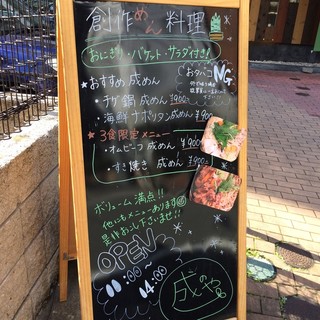 創作めん料理
おにぎり・バケット・サラダ付き!
おタバコNG
★おすすめ 成めん
・チゲ鍋 成めん ¥900
・海鮮ナポリタン成めん ¥900
★3食限定メニュー
・オムビーフ 成めん ¥900
・すき焼き 成めん ¥900
ボリューム満点!!
他にもメニューあります
是非お こし下さいませ!!
OPEN
11:00~
14:00
成のや